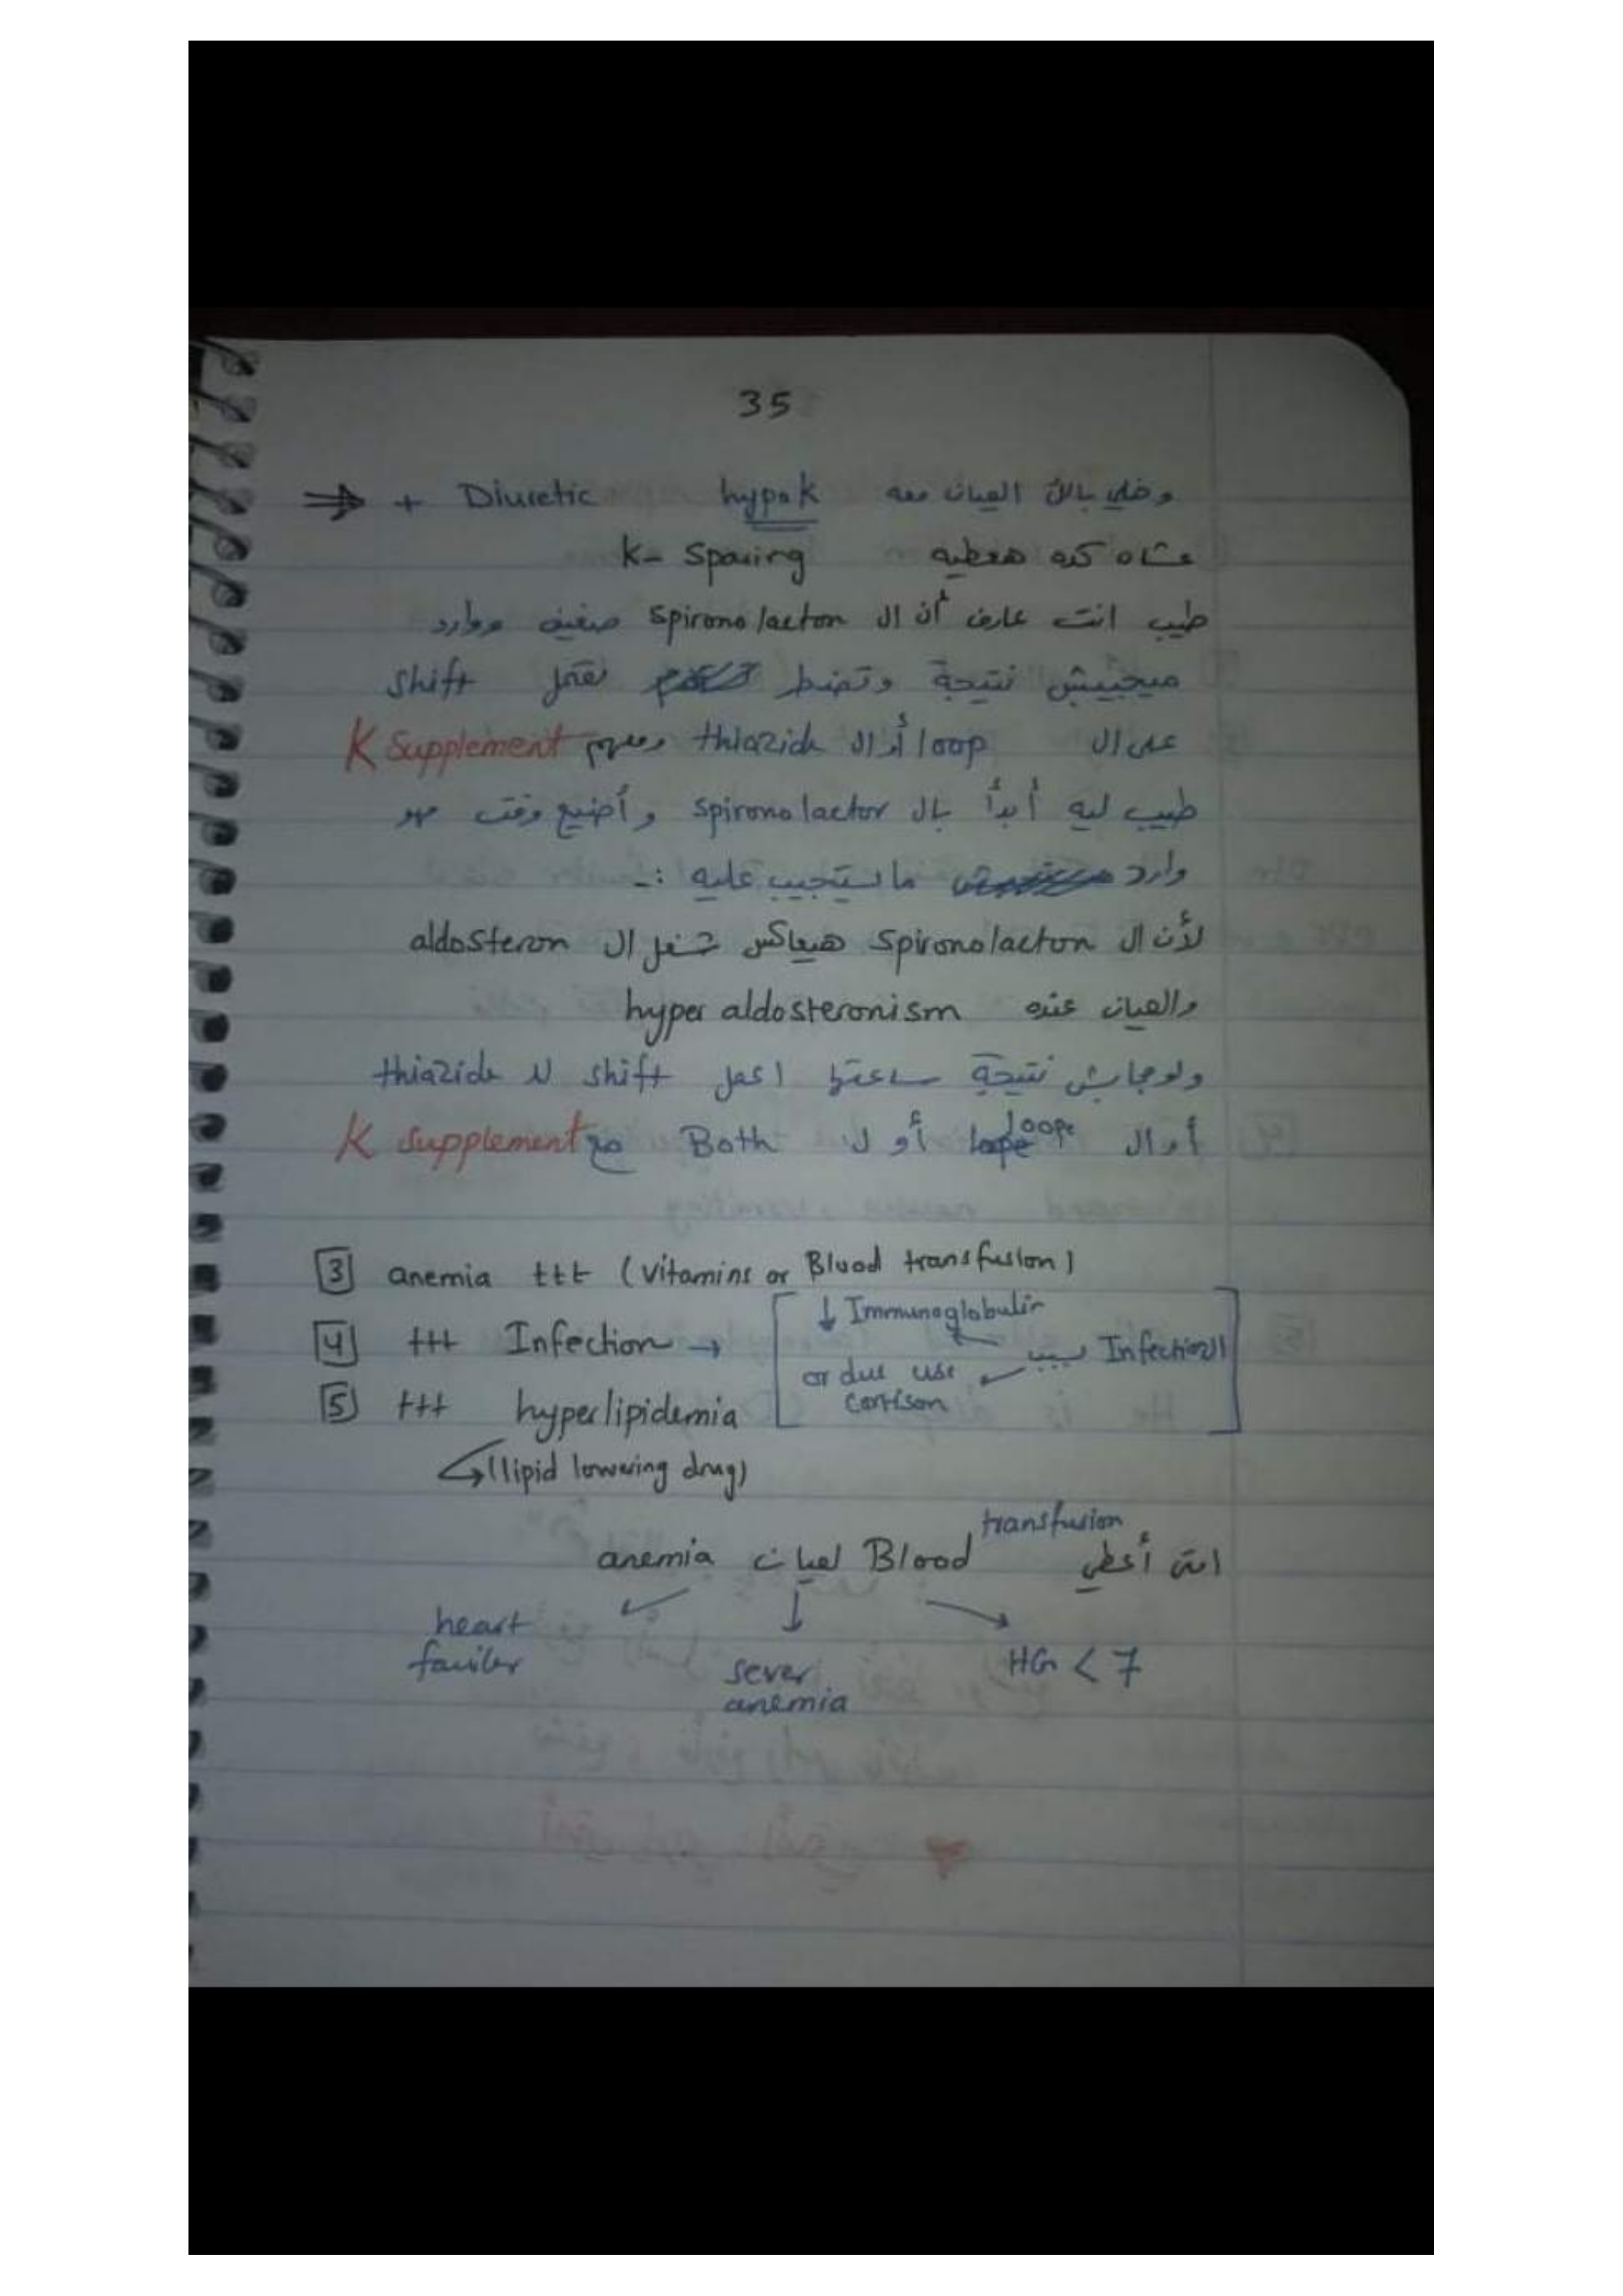 35
⇒ + Diuretic hypok وخلي بالك العيان معه
عشاه كده هعطيه K- Sparing
طيب انت عارف أن ال spironolacton ضعيف ووارد
ميجيبش نتيجة وتضطر نعمل shift
على ال loop أو ال thiazide ومعهم K Supplement
طيب ليه أبدأ بال spironolacton وأضيع وقت مهو
وارد ما يستجيب عليه :-
لأن ال spironolacton هيعاكس شغل ال aldosteron
والعيان عنده hyper aldosteronism
ولو جابش نتيجة ساعتها اعمل shift لل thiazide
أو ال loope أو ل Both مع K supplement
3 anemia ttt (vitamins or Blood transfusion)
4 ttt Infection → [ ↓ Immunoglobulin
or due use cortison
بسبب Infection ال ]
5 ttt hyperlipidemia
(lipid lowering drug)
امتى أعطي Blood transfusion لعيان anemia
heart failer
sever anemia
HG < 7